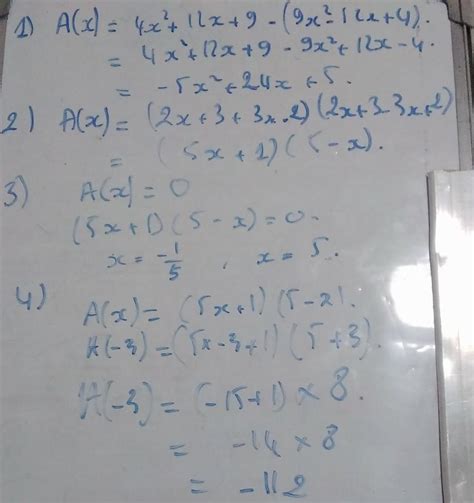 1) A(x) = 4x²+12x+9 - (9x²-12x+4).
= 4x²+12x+9 - 9x²+12x-4.
= -5x²+24x+5.
2) A(x) = (2x+3+3x-2)(2x+3-3x+2)
= (5x+1)(5-x).
3) A(x) = 0
(5x+1)(5-x)=0.
x = -1/5 , x = 5.
4) A(x) = (5x+1)(5-x).
A(-3) = (5x-3+1)(5+3).
A(-3) = (-15+1)×8.
= -14×8
= -112